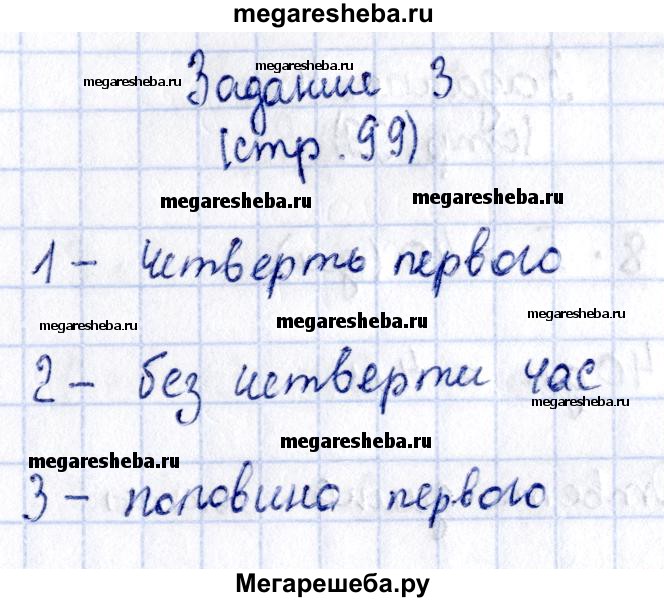 megaresheba.ru
megaresheba.ru
megaresheba.ru Задание 3
(стр. 99)
megaresheba.ru megaresheba.ru
1 - четверть первого
megaresheba.ru megaresheba.ru megaresheba.ru
2 - без четверти час
megaresheba.ru
megaresheba.ru
megaresheba.ru
3 - половина первого
Мегарешеба.ру